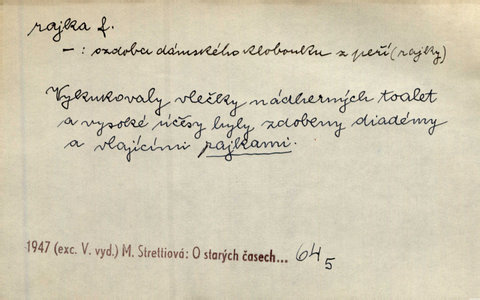 rajka f.
– : ozdoba dámského klobouku z peří (rajky)
Vykukovaly vlečky nádherných toalet
a vysoké účesy byly zdobeny diadémy
a vlajícími rajkami.
1947 (exc. V. vyd.) M. Strettiová: O starých časech... 64 5